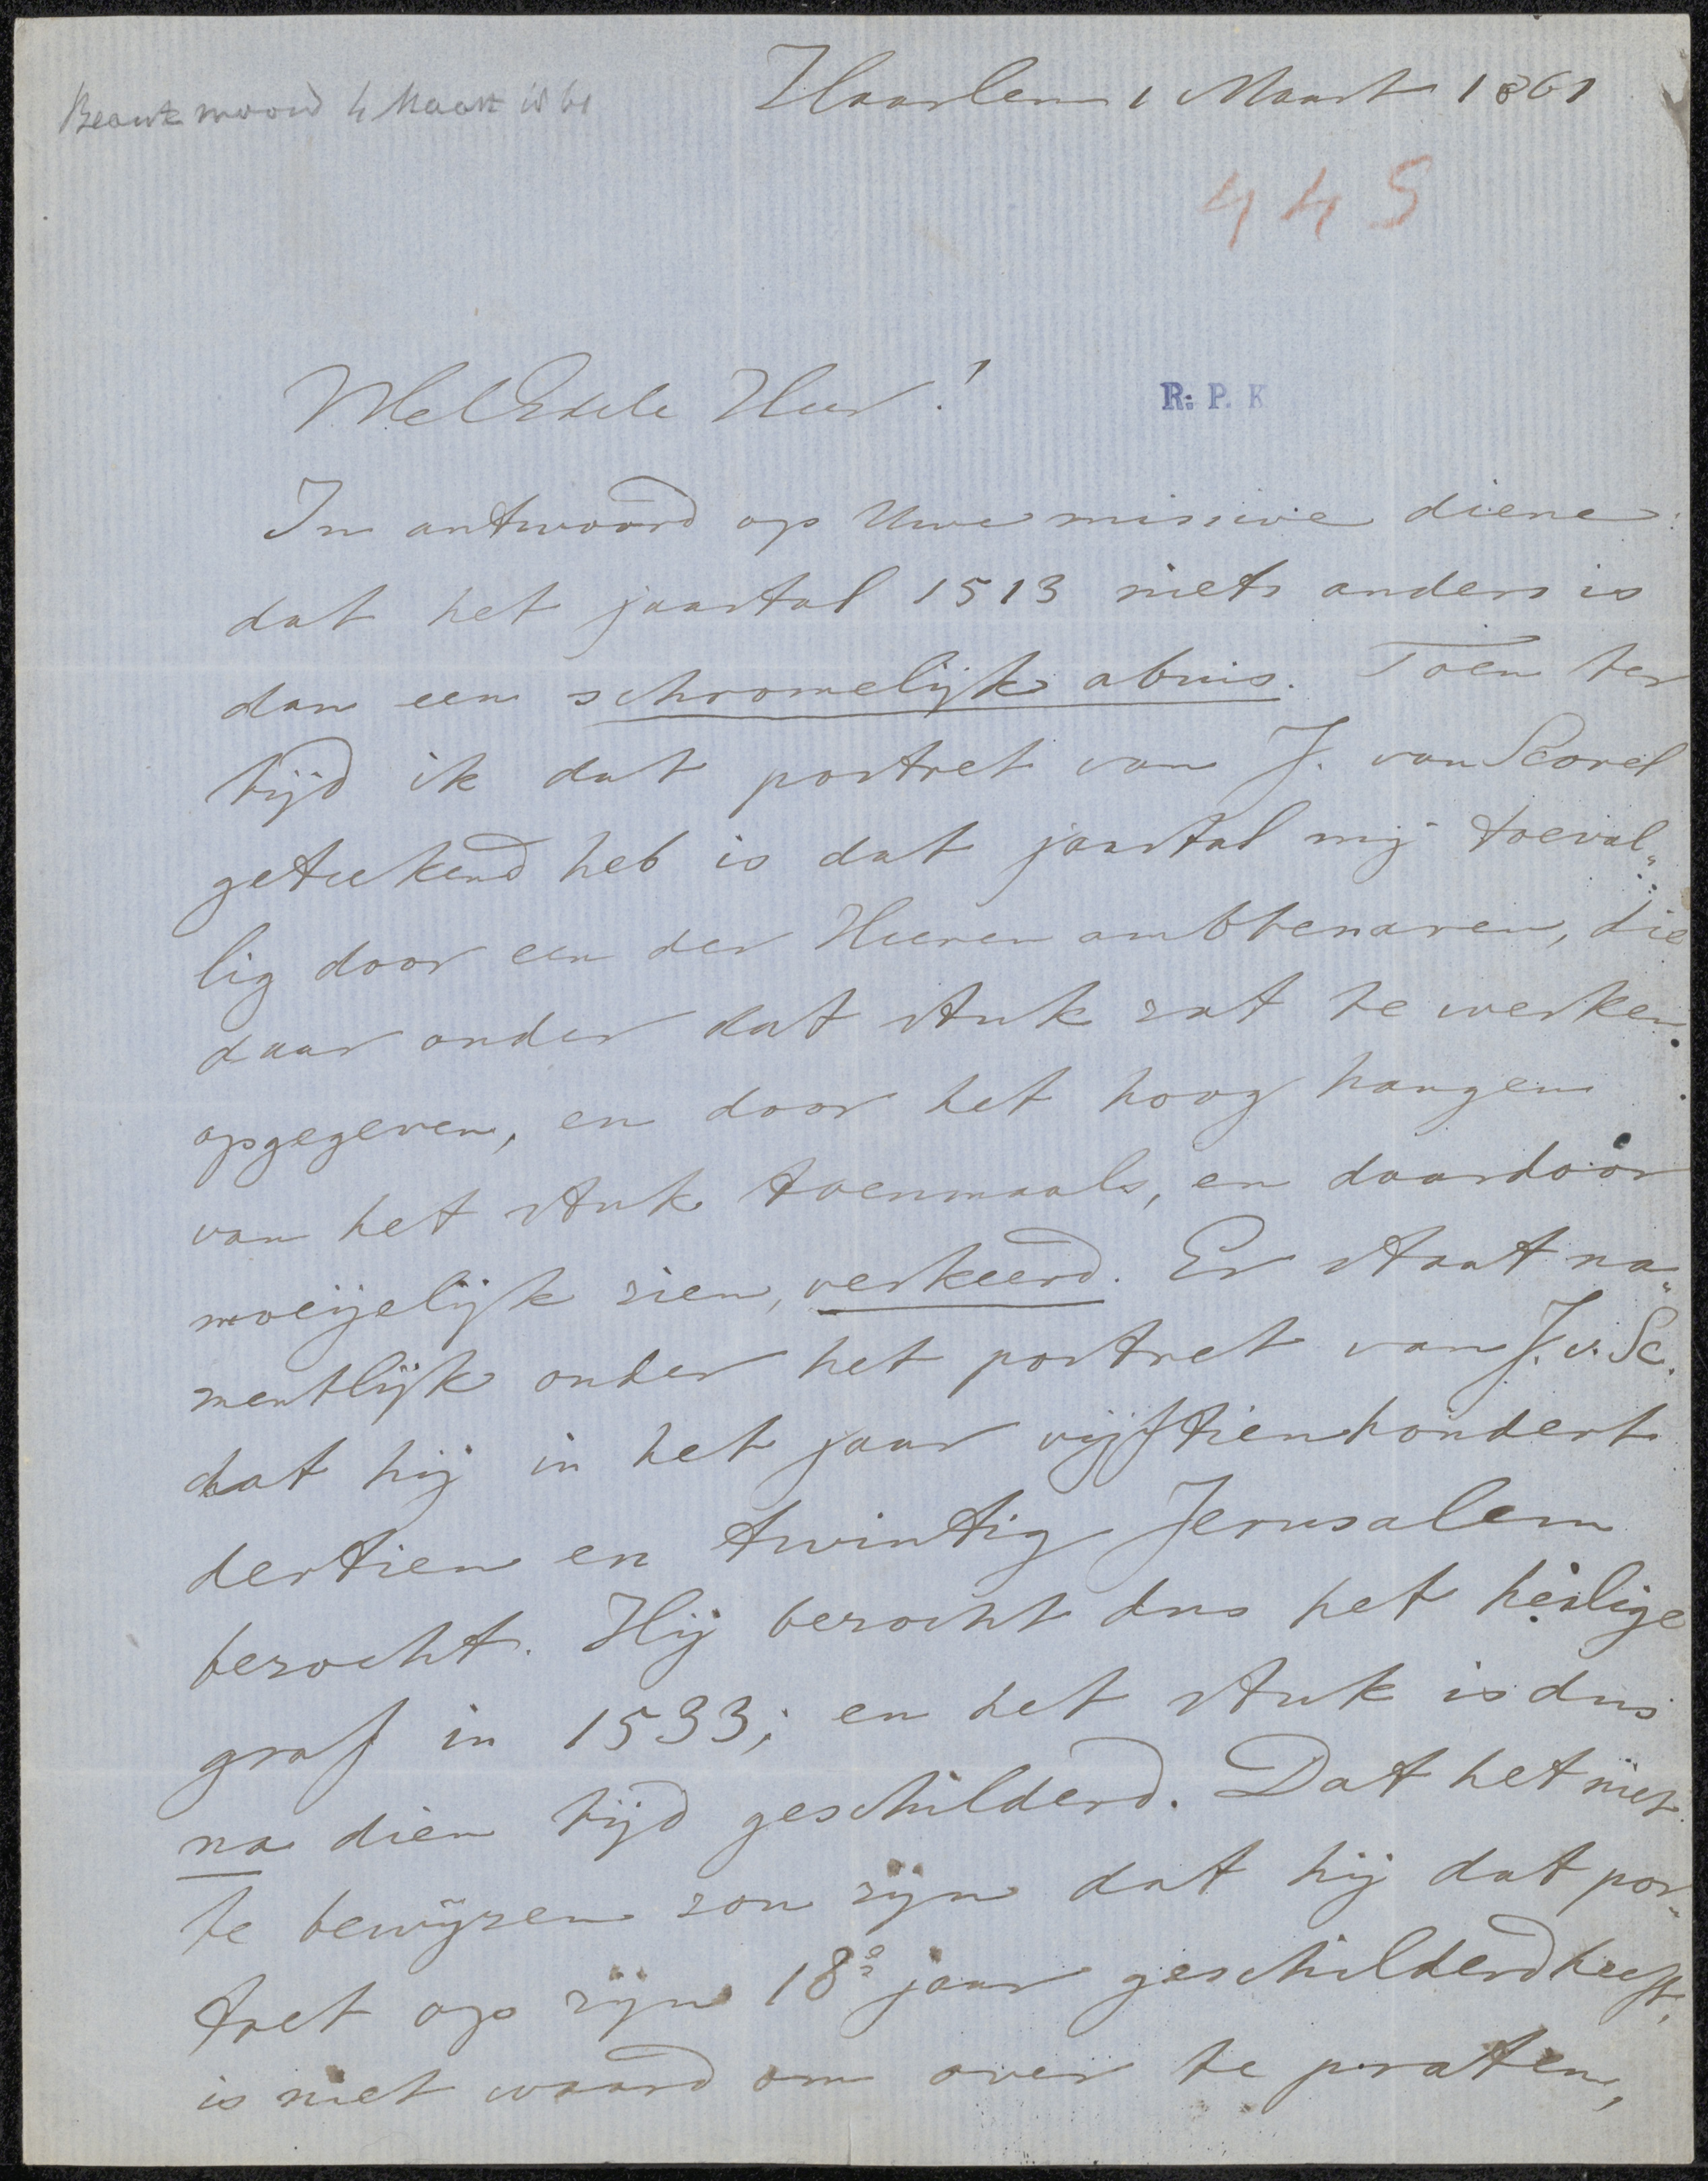 Beantwoord 4 Maart 1861
Haarlem 1 Maart 1861
445
WelEdele Heer!
R. P. K
In antwoord op Uwe missive diene:
dat het jaartal 1513 niets anders is
dan een schromelijk abuis. Toen ter
tijd ik dat portret van J. van Scorel
geteekend heb is dat jaartal mij toeval„
lig door een der Heeren ambtenaren, die
daar onder dat stuk zat te werken
opgegeven, en door het hoog hangen
van het stuk toenmaals, en daardoor
moeijelijk zien, verkeerd. Er staat na„
mentlijk onder het portret van J. v. Sc.
dat hij in het jaar vijftienhondert
dertien en twintig Jerusalem
bezocht. Hij bezocht dus het heilige
graf in 1533; en het stuk is dus
na dien tijd geschilderd. Dat het niet
te bewijzen zou zijn dat hij dat por„
tret op zijn 18e jaar geschilderd heeft,
is niet waard om over te praten,